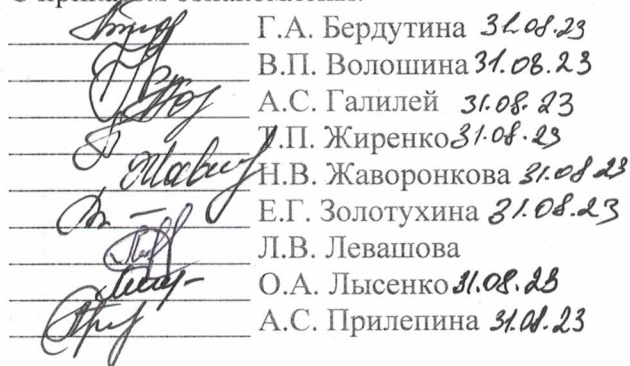 С приказом ознакомлены:
Г.А. Бердутина 31.08.23
В.П. Волошина 31.08.23
А.С. Галилей 31.08.23
Т.П. Жиренко 31.08.23
Н.В. Жаворонкова 31.08.23
Е.Г. Золотухина 31.08.23
Л.В. Левашова
О.А. Лысенко 31.08.23
А.С. Прилепина 31.08.23